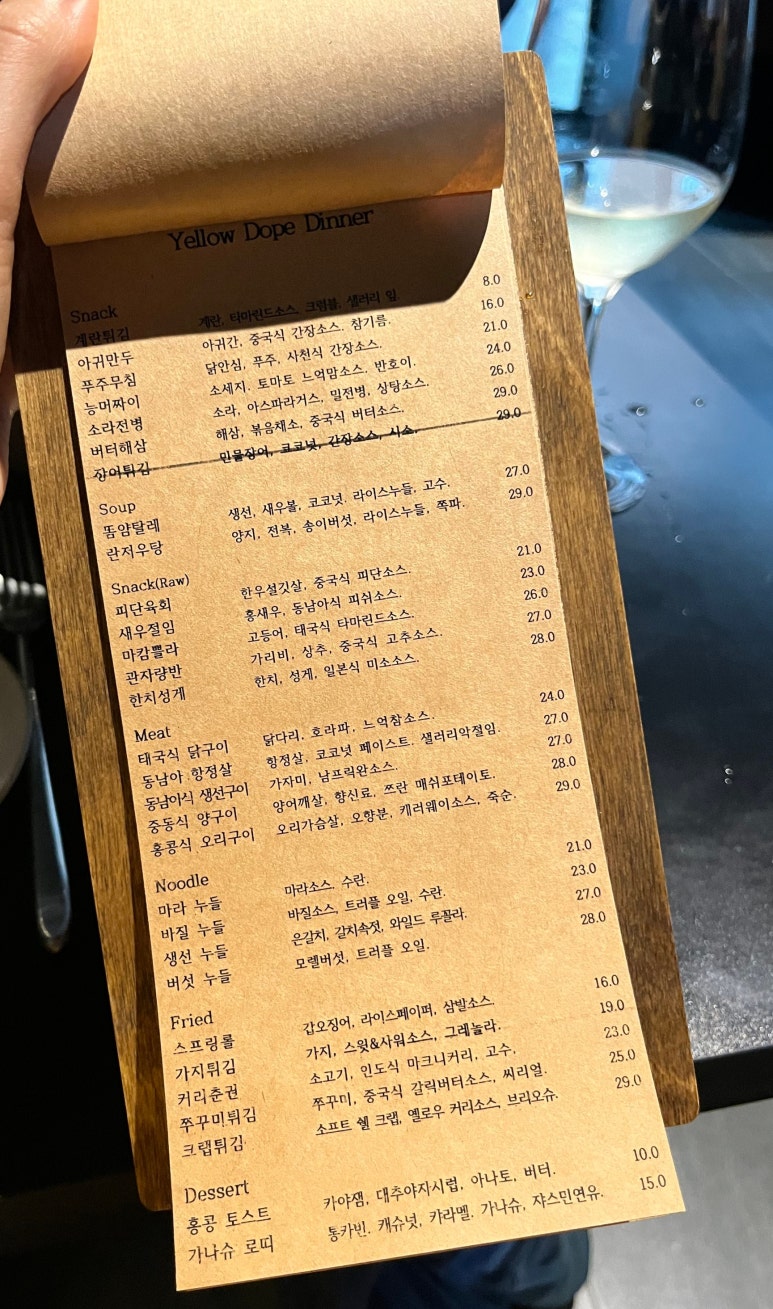 Yellow Dope Dinner
Snack
계란튀김 계란, 타마린드소스, 크럼블, 샐러리 잎 8.0
아귀만두 아귀간, 중국식 간장소스. 참기름. 16.0
푸주무침 닭안심, 푸주, 사천식 간장소스. 21.0
능머짜이 소세지. 토마토 느억맘소스. 반호이. 24.0
소라전병 소라, 아스파라거스, 밀전병, 상탕소스. 26.0
버터해삼 해삼, 볶음채소, 중국식 버터소스. 29.0
장어튀김 민물장어, 코코넛, 간장소스, 시소. 29.0
Soup
똠얌탈레 생선, 새우볼, 코코넛, 라이스누들, 고수. 27.0
란저우탕 양지, 전복, 송이버섯, 라이스누들, 쪽파. 29.0
Snack(Raw)
피단육회 한우설깃살, 중국식 피단소스. 21.0
새우절임 홍새우, 동남아식 피쉬소스. 23.0
마캄쁠라 고등어, 태국식 타마린드소스. 26.0
관자량반 가리비, 상추, 중국식 고추소스. 27.0
한치성게 한치, 성게, 일본식 미소소스. 28.0
Meat
태국식 닭구이 닭다리, 호라파, 느억참소스. 24.0
동남아 항정살 항정살, 코코넛 페이스트. 샐러리악절임. 27.0
동남아식 생선구이 가자미, 남프릭완소스. 27.0
중동식 양구이 양어깨살, 향신료, 쯔란 매쉬포테이토. 28.0
홍콩식 오리구이 오리가슴살, 오향분, 캐러웨이소스, 죽순. 29.0
Noodle
마라 누들 마라소스. 수란. 21.0
바질 누들 바질소스, 트러플 오일, 수란. 23.0
생선 누들 은갈치, 갈치속젓, 와일드 루꼴라. 27.0
버섯 누들 모렐버섯, 트러플 오일. 28.0
Fried
스프링롤 갑오징어, 라이스페이퍼, 삼발소스. 16.0
가지튀김 가지, 스윗&사워소스, 그레놀라. 19.0
커리춘권 소고기, 인도식 마크니커리, 고수, 23.0
쭈꾸미튀김 쭈꾸미, 중국식 갈릭버터소스, 씨리얼. 25.0
크랩튀김 소프트 쉘 크랩, 옐로우 커리소스, 브리오슈. 29.0
Dessert
홍콩 토스트 카야잼, 대추야자시럽, 아나토, 버터. 10.0
가나슈 로띠 통카빈. 캐슈넛, 카라멜. 가나슈, 쟈스민연유. 15.0